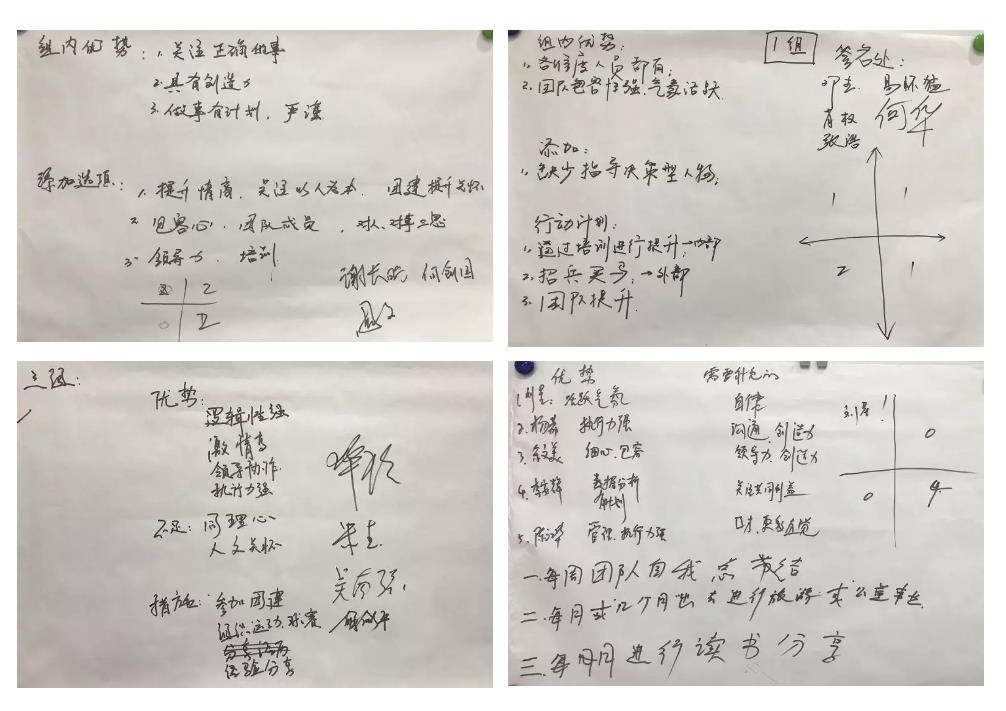 组内优势：1. 关注正确做事
2. 具有创造力
3. 做事有计划，严谨
添加选项：1. 提升情商，关注以人为本，团建提升关怀
2. 包容心，团队成员，对人、对事三思
3. 领导力，培训
1 2
2
谢长 何剑国
1组
组内优势：
1、各维度人员都有；
2、团队包容性强、气氛活跃
签名处：
邓志 易怀猛
肖权 何华
张浩
添加：
1、缺少指导决策型人物；
行动计划：
1、通过培训进行提升→内部
2、招兵买马；→外部
3、团队提升.
1 1
2 1
三组：
优势：
逻辑性强
激情高
领导协作
执行力强
不足：同理心
人文关怀
措施：参加团建
组织运动、球赛
经验分享
优势 需要补充的
1. 活跃气氛 自律
2. 杨 执行力强 沟通、创造力
3. 美 细心、包容 领导力、创造力
4. 数据分析 有计划 关注共同利益
5. 管理、执行力强 口才、更直觉
1 0
0 4
一.每周团队自我总结
二.每月或几个月出去进行旅游或公益事业.
三.每月进行读书分享